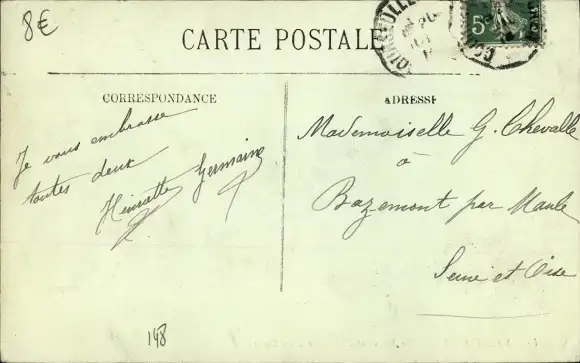 8€
CARTE POSTALE
5
CORRESPONDANCE
ADRESSE
Je vous embrasse
toutes deux
Henriette Germaine
Mademoiselle G. Chevalle
à
Bazemont par Maule
Seine et Oise
148